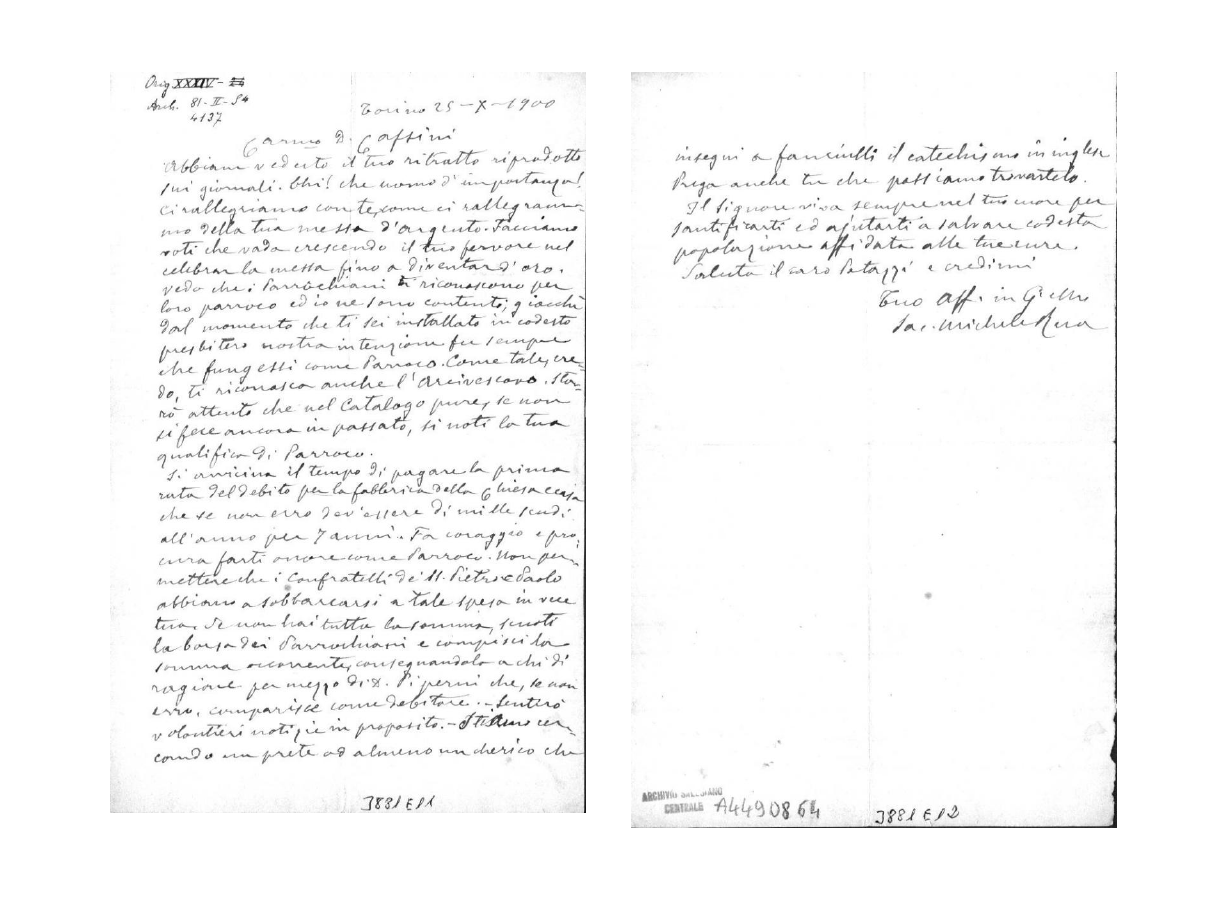 Orig XXXIV -
Arch. 81-II-S4
4137
Torino 25-X-1900
Carmo D. Cassini
Abbiamo veduto il tuo ritratto riprodotto
sui giornali. Ohi! che uomo d'importanza!
Ci rallegriamo con te, come ci rallegram-
mo della tua messa d'argento. Facciamo
voti che vada crescendo il tuo fervore nel
celebrar la messa fino a diventar d'oro.
Vedo che i Parrochiani ti riconoscono per
loro parroco ed io ne sono contento, giacchè
dal momento che ti sei installato in codesto
presbitero nostra intenzione fu sempre
che fungessi come Parroco. Come tale, cre-
do, ti riconosca anche l'Arcivescovo. Sta-
rò attento che nel Catalogo pure, se non
si fece ancora in passato, si noti la tua
qualifica di Parroco.
Si avvicina il tempo di pagare la prima
rata del debito per la fabbrica della Chiesa e casa
che se non erro dev'essere di mille scudi
all'anno per 7 anni. Fa coraggio e pro-
cura farti onore come Parroco. Non per-
mettere che i Confratelli de' SS. Pietro e Paolo
abbiano a sobbarcarsi a tale spesa in vece
tua. Se non hai tutta la somma, scuoti
la borsa dei Parrochiani e compisci la
somma occorrente, consegnandola a chi di
ragione per mezzo di D. Piperni che, se non
erro, comparisce come debitore. - Sentirò
volontieri notizie in proposito. - Stiamo cer-
cando un prete od almeno un cherico che
J881E11
insegni a fanciulli il catechismo in inglese
Prega anche tu che possiamo trovartelo.
Il Signore viva sempre nel tuo cuore per
santificarti ed ajutarti a salvare codesta
popolazione affidata alle tue cure.
Saluta il caro Patazzi e credimi
Tuo aff. in G. e M.
Sac. Michele Rua
ARCHIVIO SALESIANO
CENTRALE A4490864
J881E12